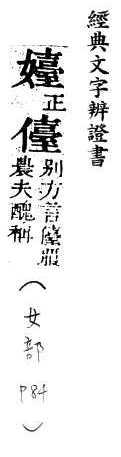 經典文字辨證書
嬯正儓別方言儓
農夫醜稱
(女部 P84)